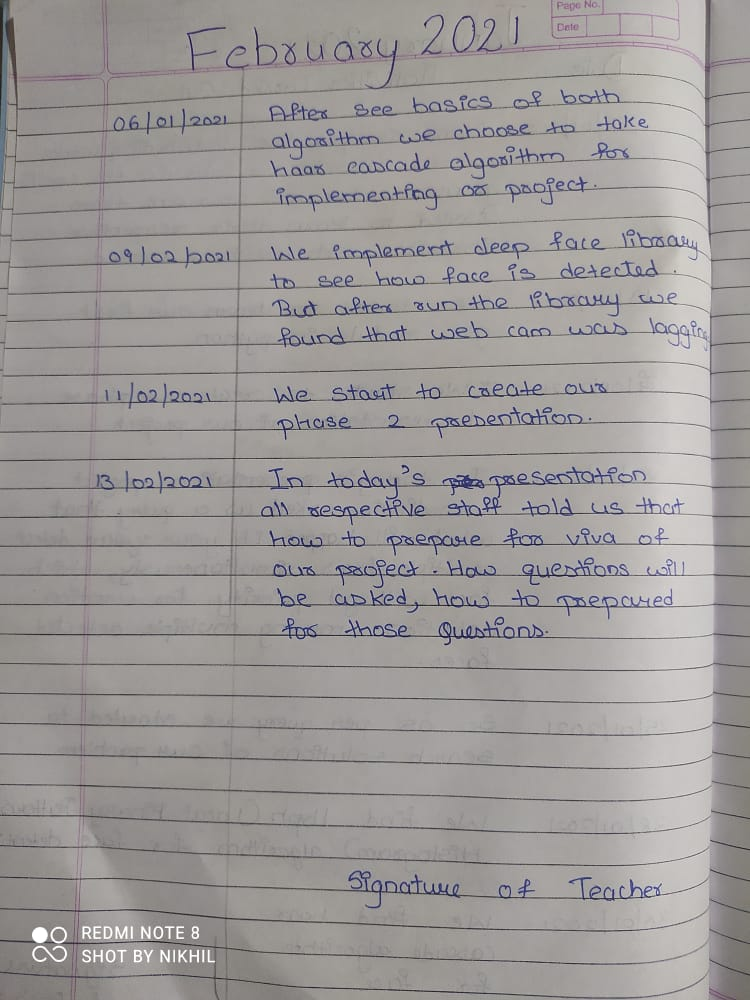 Page No.
Date
February 2021
06/01/2021 After see basics of both
algorithm we choose to take
haar cascade algorithm for
implementing or project.
09/02/2021 We implement deep face library
to see how face is detected.
But after run the library we
found that web cam was lagging
11/02/2021 We start to create our
phase 2 presentation.
13/02/2021 In today's presentation
all respective staff told us that
how to prepare for viva of
our project. How questions will
be asked, how to prepared
for those Questions.
Signature of Teacher
REDMI NOTE 8
SHOT BY NIKHIL